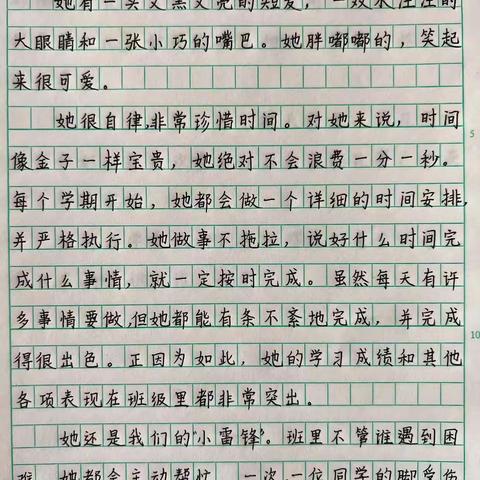 她有一头又黑又亮的短发，一双水汪汪的
大眼睛和一张小巧的嘴巴。她胖嘟嘟的，笑起
来很可爱。
她很自律，非常珍惜时间。对她来说，时间
像金子一样宝贵，她绝对不会浪费一分一秒。
每个学期开始，她都会做一个详细的时间安排，
并严格执行。她做事不拖拉，说好什么时间完
成什么事情，就一定按时完成。虽然每天有许
多事情要做，但她都能有条不紊地完成，并完成
得很出色。正因为如此，她的学习成绩和其他
各项表现在班级里都非常突出。
她还是我们的“小雷锋”。班里不管谁遇到困
难，她都会主动帮忙。一次，一位同学的脚受伤
5
10